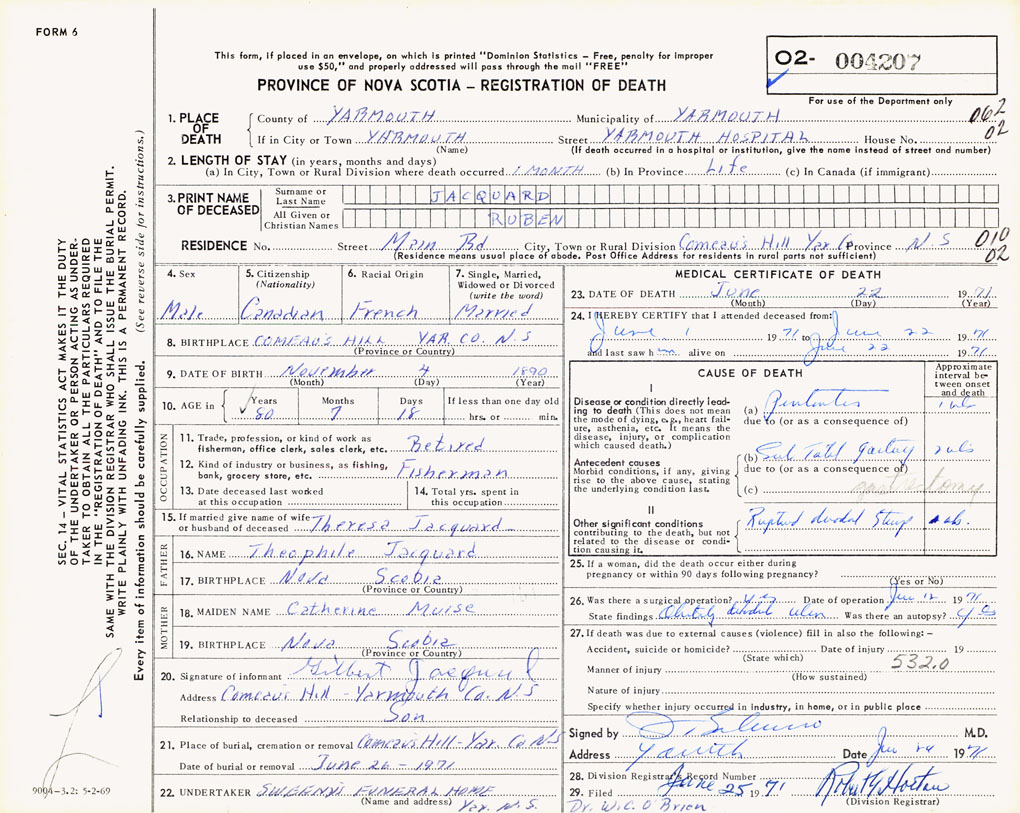 FORM 6
This form, if placed in an envelope, on which is printed "Dominion Statistics – Free, penalty for improper
use $50," and properly addressed will pass through the mail "FREE"
PROVINCE OF NOVA SCOTIA – REGISTRATION OF DEATH
02- 004207
For use of the Department only
SEC. 14 – VITAL STATISTICS ACT MAKES IT THE DUTY
OF THE UNDERTAKER OR PERSON ACTING AS UNDER-
TAKER TO OBTAIN ALL THE PARTICULARS REQUIRED
IN THE "REGISTRATION OF DEATH" AND TO FILE THE
SAME WITH THE DIVISION REGISTRAR WHO SHALL ISSUE THE BURIAL PERMIT.
WRITE PLAINLY WITH UNFADING INK. THIS IS A PERMANENT RECORD.
Every item of information should be carefully supplied. (See reverse side for instructions.)
1. PLACE OF DEATH
County of YARMOUTH Municipality of YARMOUTH 062
If in City or Town YARMOUTH Street YARMOUTH HOSPITAL House No. 02
(Name) (If death occurred in a hospital or institution, give the name instead of street and number)
2. LENGTH OF STAY (in years, months and days)
(a) In City, Town or Rural Division where death occurred 1 MONTH (b) In Province Life (c) In Canada (if immigrant)
3. PRINT NAME OF DECEASED
Surname or Last Name JACQUARD
All Given or Christian Names RUBEN
RESIDENCE No. Street Main Rd City, Town or Rural Division Comeau's Hill Yar. Co Province N.S 010
(Residence means usual place of abode. Post Office Address for residents in rural parts not sufficient) 02
4. Sex
Male
5. Citizenship
(Nationality)
Canadian
6. Racial Origin
French
7. Single, Married,
Widowed or Divorced
(write the word)
Married
8. BIRTHPLACE COMEAU'S HILL YAR. CO. N.S
(Province or Country)
9. DATE OF BIRTH November 4 1890
(Month) (Day) (Year)
10. AGE in Years Months Days If less than one day old
80 7 18 hrs. or min.
OCCUPATION
11. Trade, profession, or kind of work as
fisherman, office clerk, sales clerk, etc. Retired
12. Kind of industry or business, as fishing,
bank, grocery store, etc. Fisherman
13. Date deceased last worked
at this occupation
14. Total yrs. spent in
this occupation
15. If married give name of wife
or husband of deceased Theresa Jacquard
FATHER
16. NAME Theophile Jacquard
17. BIRTHPLACE Nova Scotia
(Province or Country)
MOTHER
18. MAIDEN NAME Catherine Muise
19. BIRTHPLACE Nova Scotia
(Province or Country)
20. Signature of informant Gilbert Jacquard
Address Comeau's Hill - Yarmouth Co. N.S
Relationship to deceased Son
21. Place of burial, cremation or removal Comeau's Hill - Yar. Co N.S
Date of burial or removal June 26 - 1971
22. UNDERTAKER SWEENY'S FUNERAL HOME
(Name and address) Yar. N.S.
9004–3.2: 5-2-69
MEDICAL CERTIFICATE OF DEATH
23. DATE OF DEATH June 22 1971
(Month) (Day) (Year)
24. I HEREBY CERTIFY that I attended deceased from:
June 1 1971 to June 22 1971
and last saw him alive on June 22 1971
CAUSE OF DEATH
Approximate
interval be-
tween onset
and death
I
Disease or condition directly lead-
ing to death (This does not mean
the mode of dying, e.g., heart fail-
ure, asthenia, etc. It means the
disease, injury, or complication
which caused death.)
(a)
due to (or as a consequence of)
Antecedent causes
Morbid conditions, if any, giving
rise to the above cause, stating
the underlying condition last.
(b) Sub Total
due to (or as a consequence of)
(c) gastrectomy
II
Other significant conditions
contributing to the death, but not
related to the disease or condi-
tion causing it.
25. If a woman, did the death occur either during
pregnancy or within 90 days following pregnancy?
(Yes or No)
26. Was there a surgical operation? Yes Date of operation Jun 12 1971
State findings Was there an autopsy? Yes
27. If death was due to external causes (violence) fill in also the following: –
Accident, suicide or homicide? Date of injury 19
(State which) 532.0
Manner of injury
(How sustained)
Nature of injury
Specify whether injury occurred in industry, in home, or in public place
Signed by M.D.
Address Date Jun 24 1971
28. Division Registrar's Record Number
29. Filed June 25 1971
(Division Registrar)
Dr. W.C. O'Brien